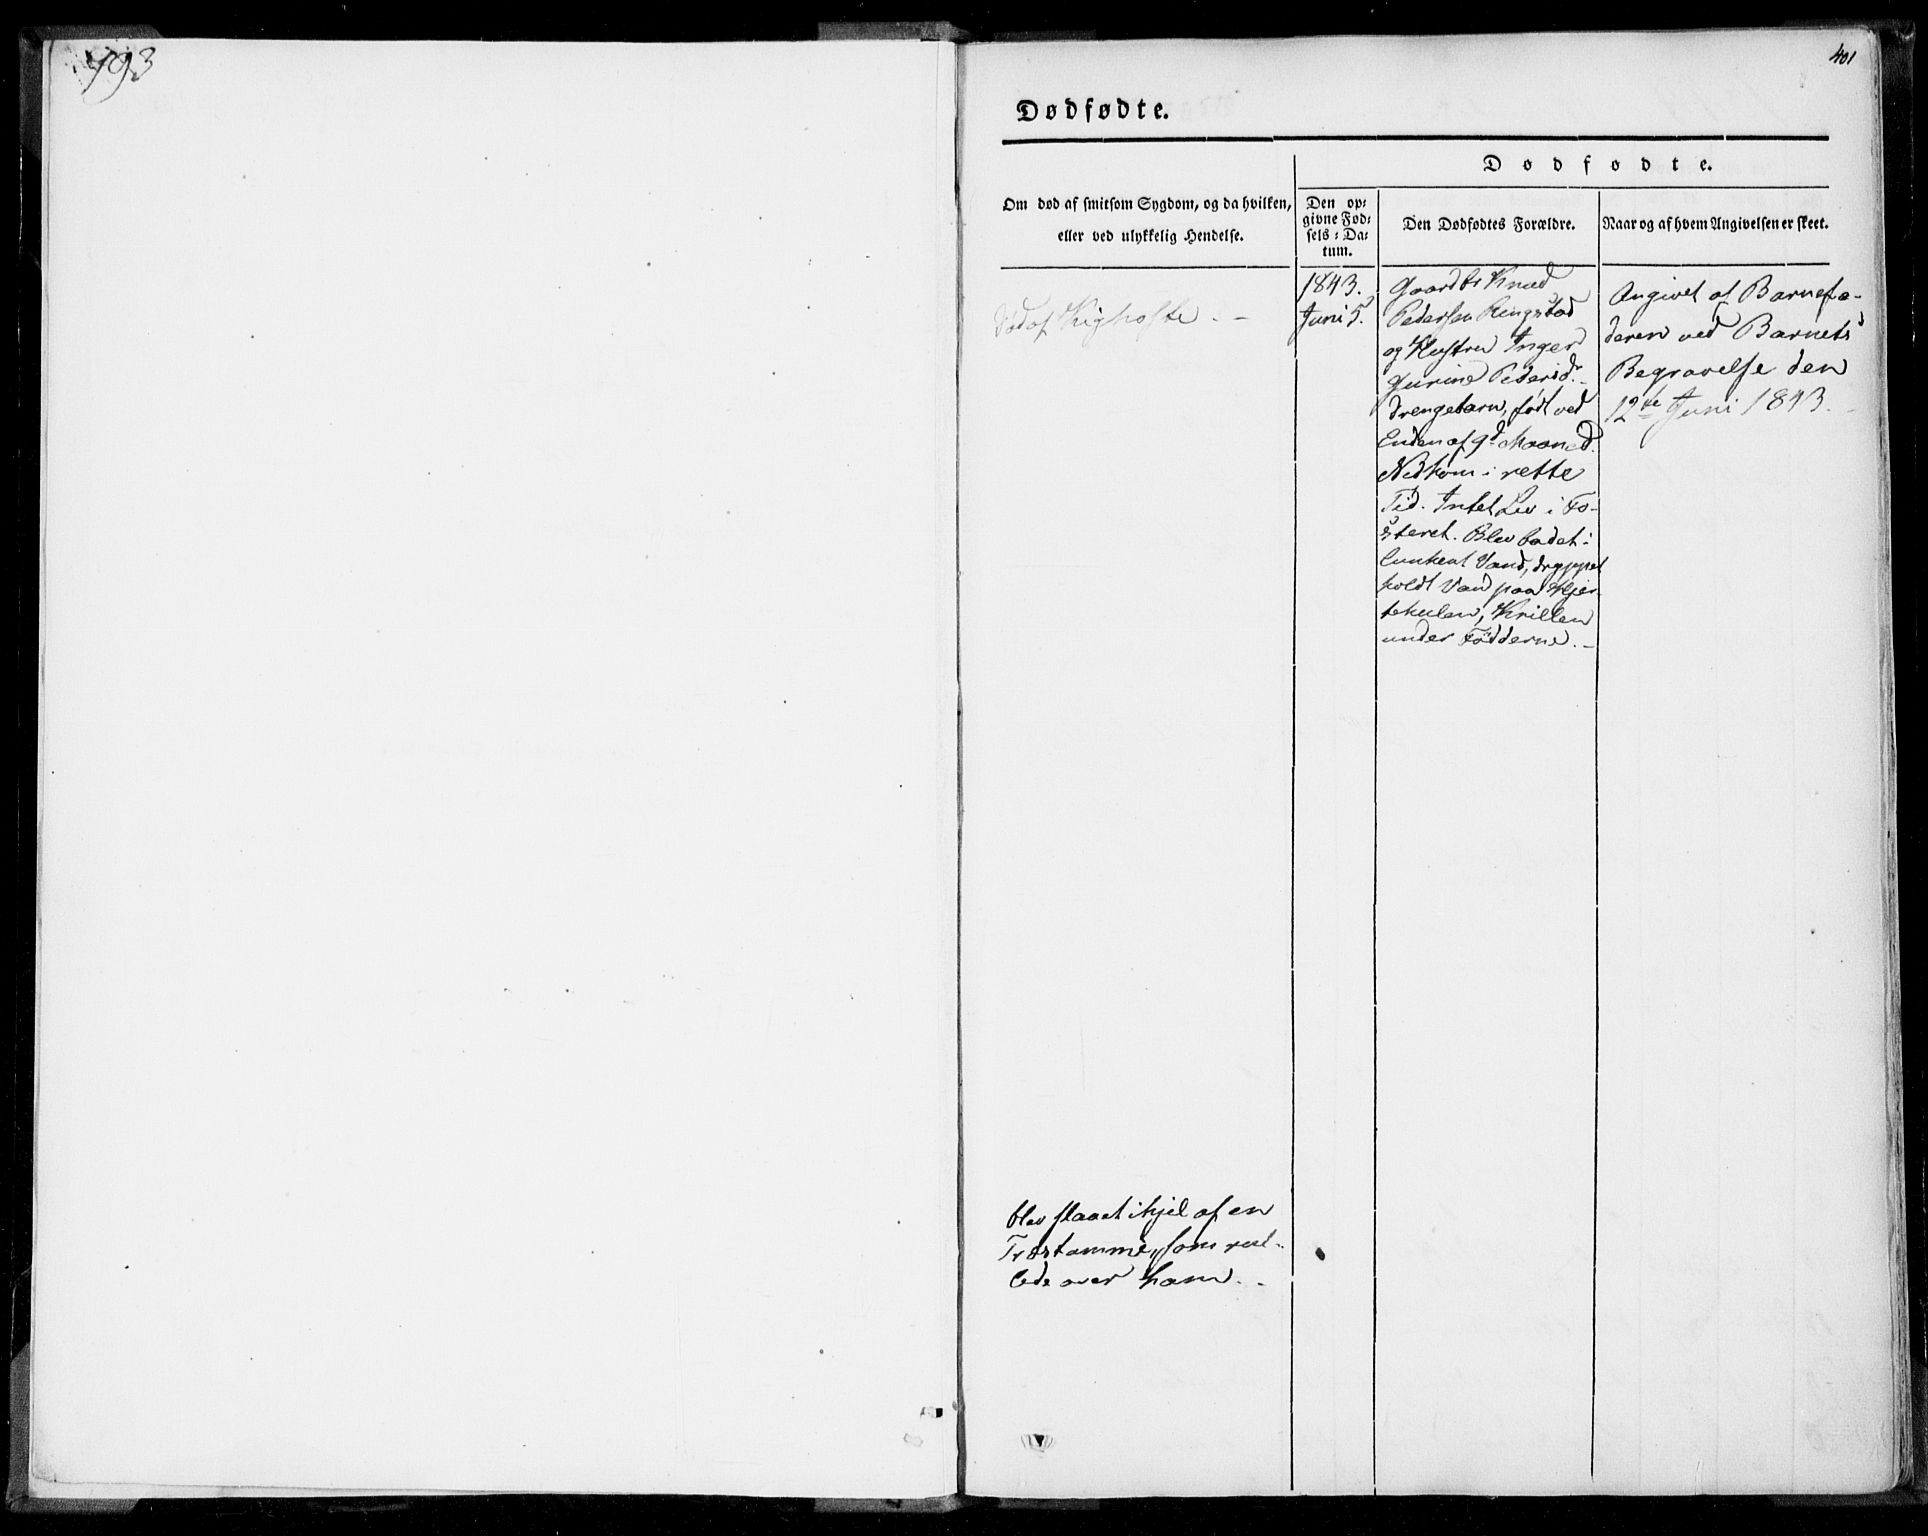 493
401
Dødfødte.
Dødfødte.
Om død af smitsom Sygdom, og da hvilken,
eller ved ulykkelig Hendelse.
Den op-
givne Fød-
sels-Da-
tum.
Den Dødfødtes Forældre.
Naar og af hvem Angivelsen er skeet.
Død af Kighoste. -
1843.
Juni 5.
Gaardbr Knud
Pedersen Ringstad
og Hustru Inger
Gurine Pedersd.
Drengebarn, født ved
Enden af 9d Maaned.
Nedkom i rette
Tid. Intet Liv i Fo-
steret. Blev badet i
lunkent Vand, dryppet
koldt Vand paa Hjer-
tekulen,
under Fødderne. -
Angivet af Barnefa-
deren ved Barnets
Begravelse den
12te Juni 1843.
blev slaaet ihjel af en
Træstamme, som rul-
lede over ham. -